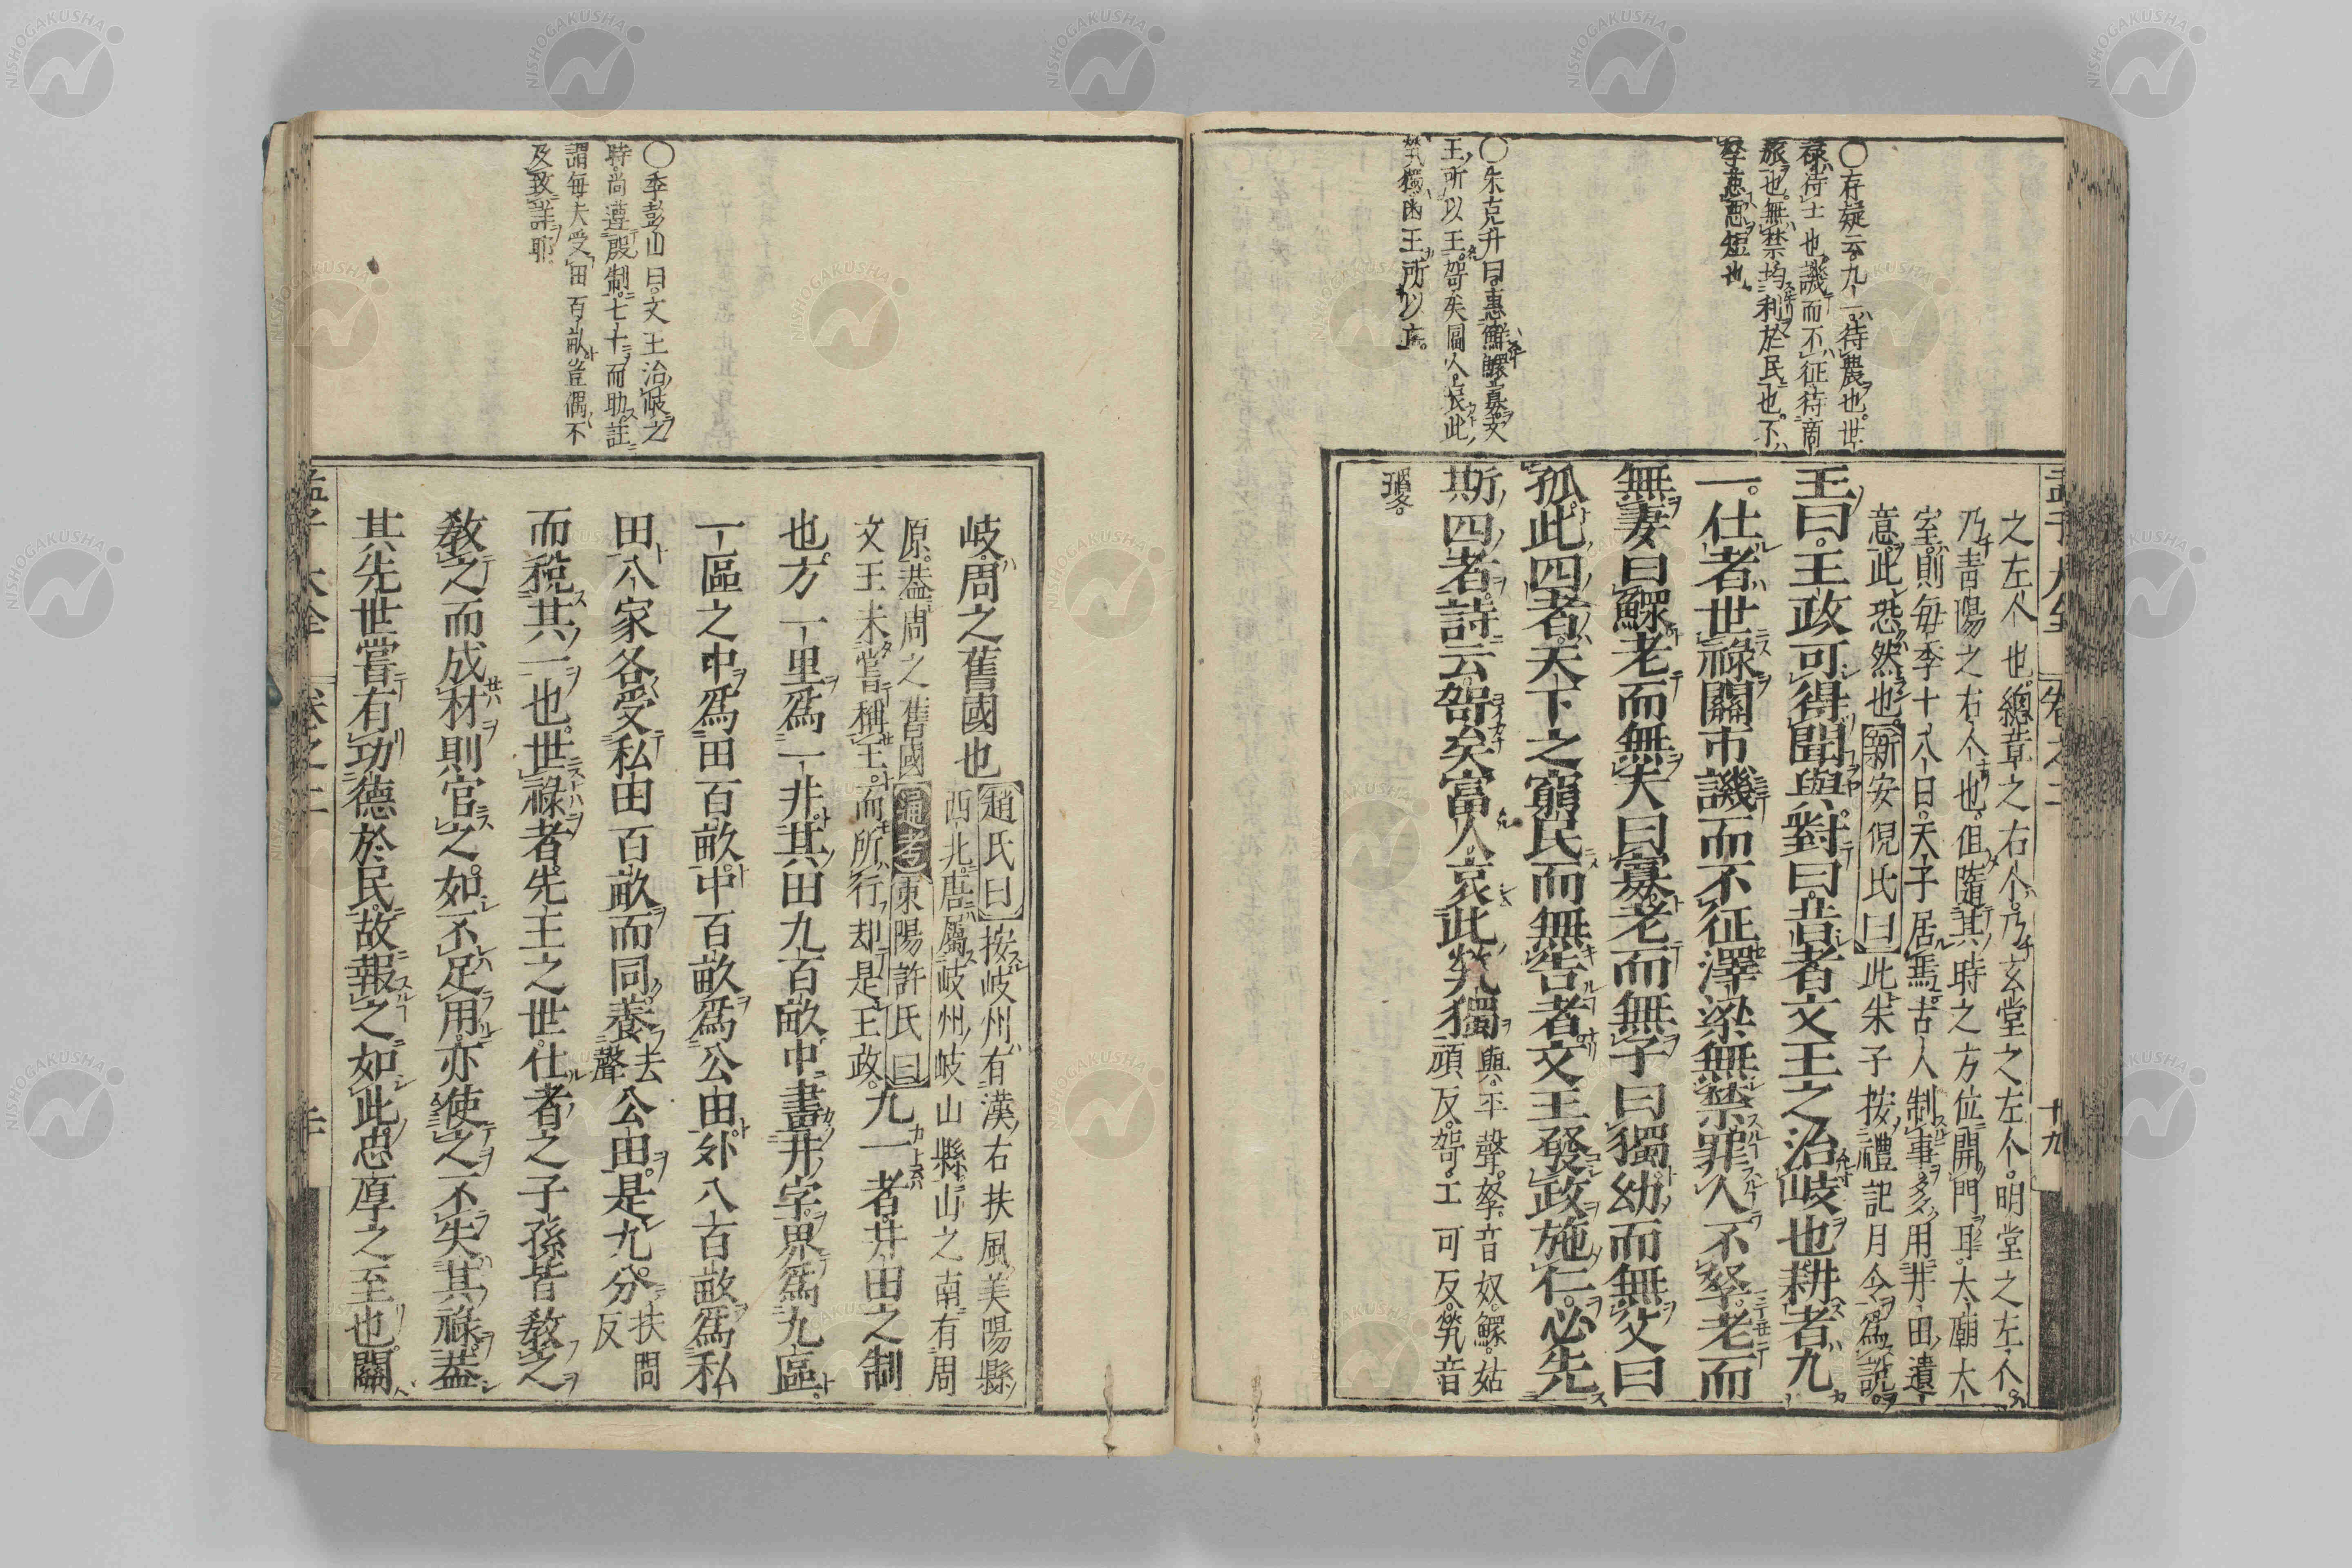 〇存疑云九一待農也世
祿待士也譏而不征待商
旅也無禁均利於民也不
孥惡惡短也
〇朱克升曰惠鰥寡文
王所以王哿矣富人哀此
煢獨幽王所以亡
之左个也總章之右个乃玄堂之左个明堂之左个
乃青陽之右个也但隨其時之方位開門耳大廟大
室則每季十八日天子居焉古人制事多用井田遺
意此恐然也新安倪氏曰此朱子按禮記月令為說
王曰王政可得聞與對曰昔者文王之治岐也耕者九
一仕者世祿關市譏而不征澤梁無禁罪人不孥老而
無妻曰鰥老而無夫曰寡老而無子曰獨幼而無父曰
孤此四者天下之窮民而無告者文王發政施仁必先
斯四者詩云哿矣富人哀此煢獨
與平聲孥音奴鰥姑
頑反哿工可反煢音
瓊
孟子大全 卷之二 十九
〇季彭山曰文王治岐之
時尚遵殷制七十而助註
謂每夫受田百畝豈偶不
及致詳耶
岐周之舊國也
趙氏曰按岐州有漢右扶風美陽縣
西北居屬岐州岐山縣山之南有周
原葢周之舊國通考東陽許氏曰
文王未嘗稱王而所行却是王政
九一者井田之制
也方一里爲一井其田九百畝中畫井字界爲九區
一區之中爲田百畝中百畝爲公田外八百畝爲私
田八家各受私田百畝而同養
去
聲
公田是九分
扶問
反
而稅其一也世祿者先王之世仕者之子孫皆敎之
敎之而成材則官之如不足用亦使之不失其祿葢
其先世嘗有功德於民故報之如此忠厚之至也關
孟子大全 卷之二 二十